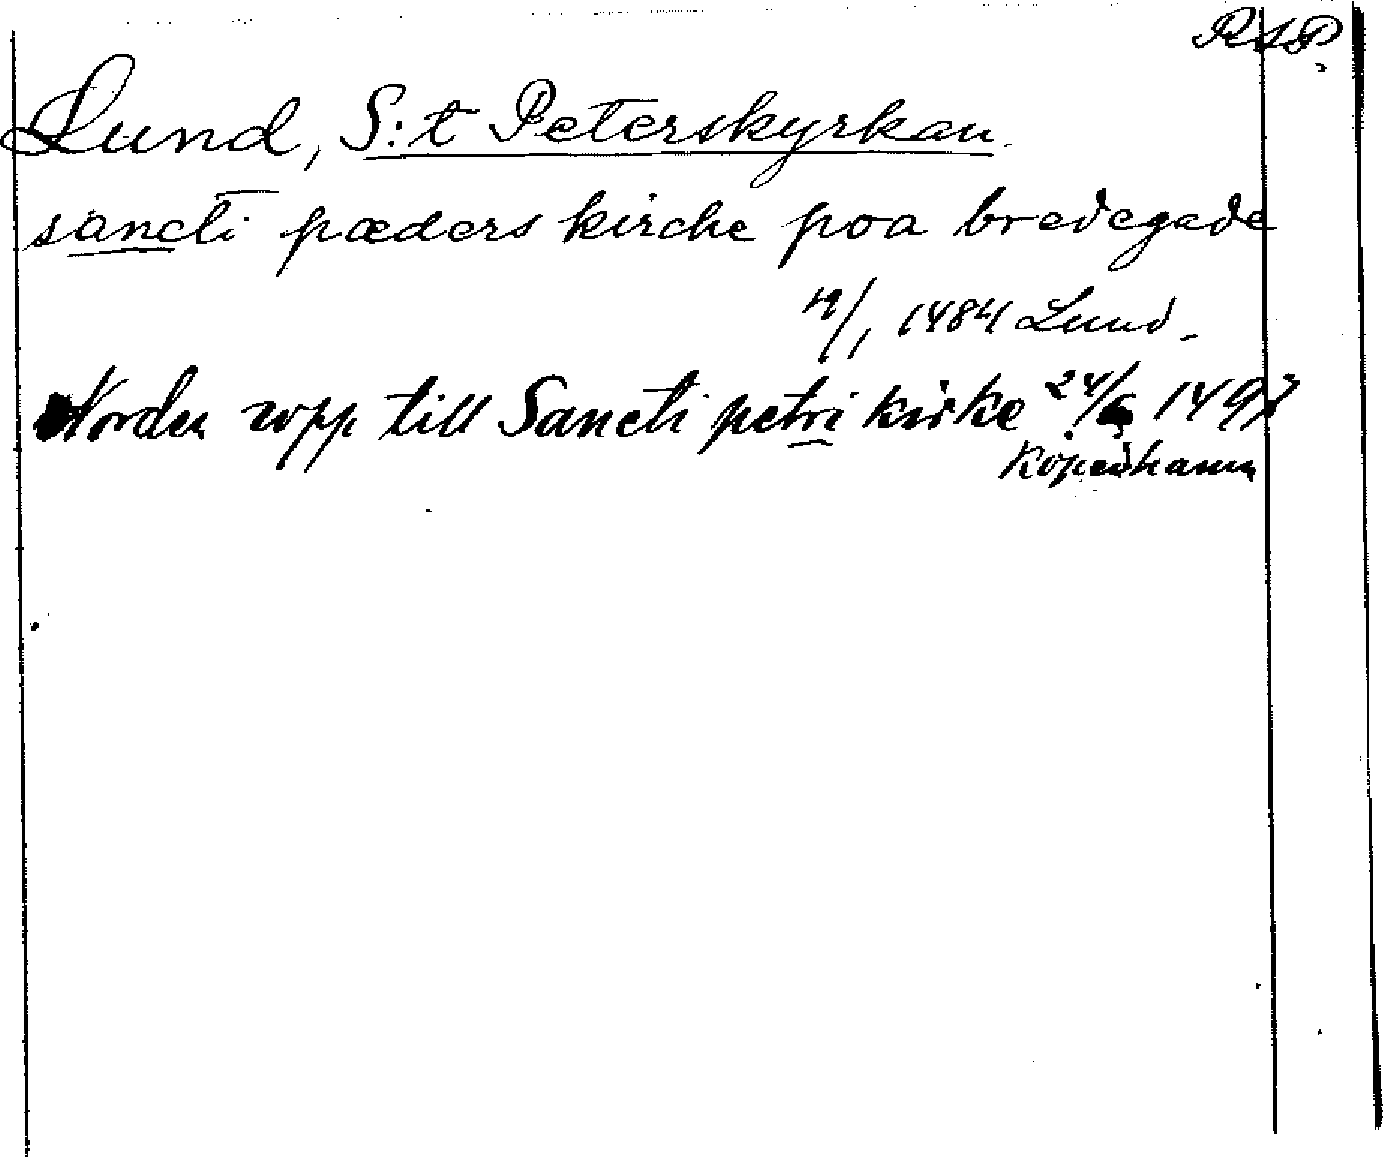 RSP
Lund, S:t Peterskyrkan.
sancti pæders kirche poa bredegade
19/1 1484 Lund.
Norden wpp till Sancti petri kirke 24/6 1497
Köpenhamn